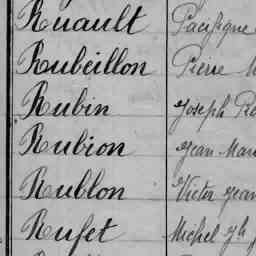 Ruault Pacifique
Rubeillon Pierre
Rubin Joseph
Rubion Jean
Rublon Victor Jean
Rufet Michel Jh